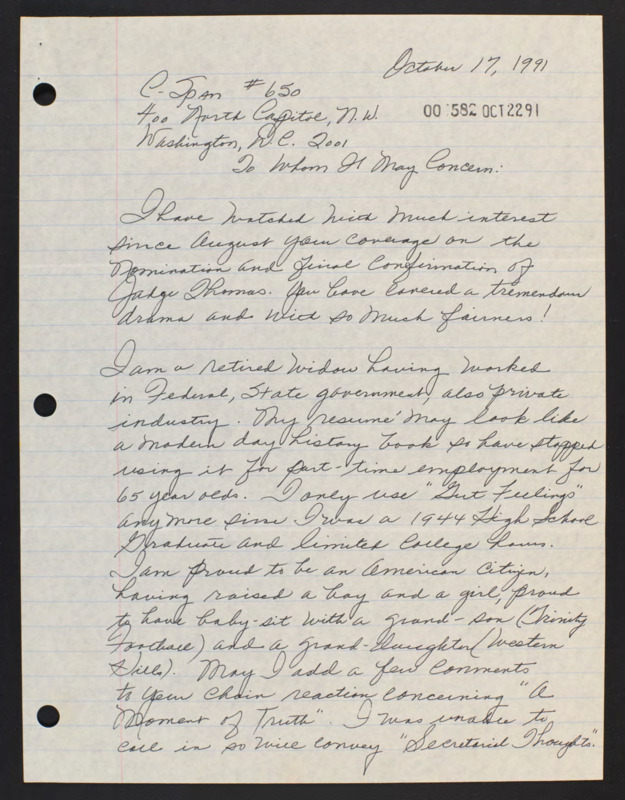 October 17, 1991
C-Span #650
400 North Capitol, N.W.
00 582 OCT 22 91
Washington, D.C. 2001
To Whom It May Concern:
I have watched with much interest
since August your coverage on the
Nomination and final Confirmation of
Judge Thomas. You have covered a tremendous
drama and with so much fairness!
I am a retired Widow having worked
in Federal, State government, also private
industry. My resume' may look like
a modern day history book so have stopped
using it for part-time employment for
65 year olds. I only use "Gut Feelings"
anymore since I was a 1944 High School
Graduate and limited College hours.
I am proud to be an American Citizen,
having raised a boy and a girl, proud
to have baby-sit with a grand-son (Trinity
Football) and a grand-daughter (Western
Hills). May I add a few comments
to your chain reaction concerning "A
Moment of Truth". I was unable to
call in so will convey "Secretarial Thoughts."